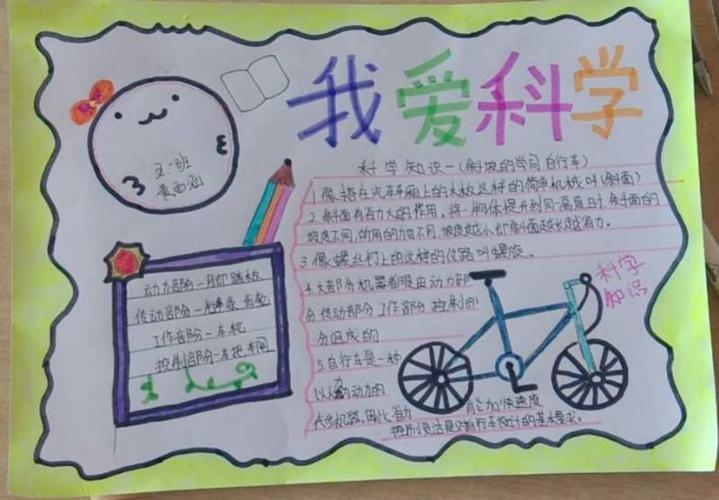 我爱科学
五一班
科学知识一(斜坡的学问 自行车)
1.像搭在汽车车厢上的木板这样的简单机械叫(斜面)
2.斜面有省力大的作用。将一物体提升到同一高度时,斜面的
坡度不同,所用的力也不同,坡度越小
3.像螺丝钉上的这样的
叫螺旋。
4.大部分机器都是由动力部
分 传动部分 工作部分 控制部
分组成的
5.自行车是一种
以人
为动力的
代步机器,因此省力
能加快速度
科学
知识
动力部分一
踏板
传动部分一
工作部分一车轮
控制部分一车把